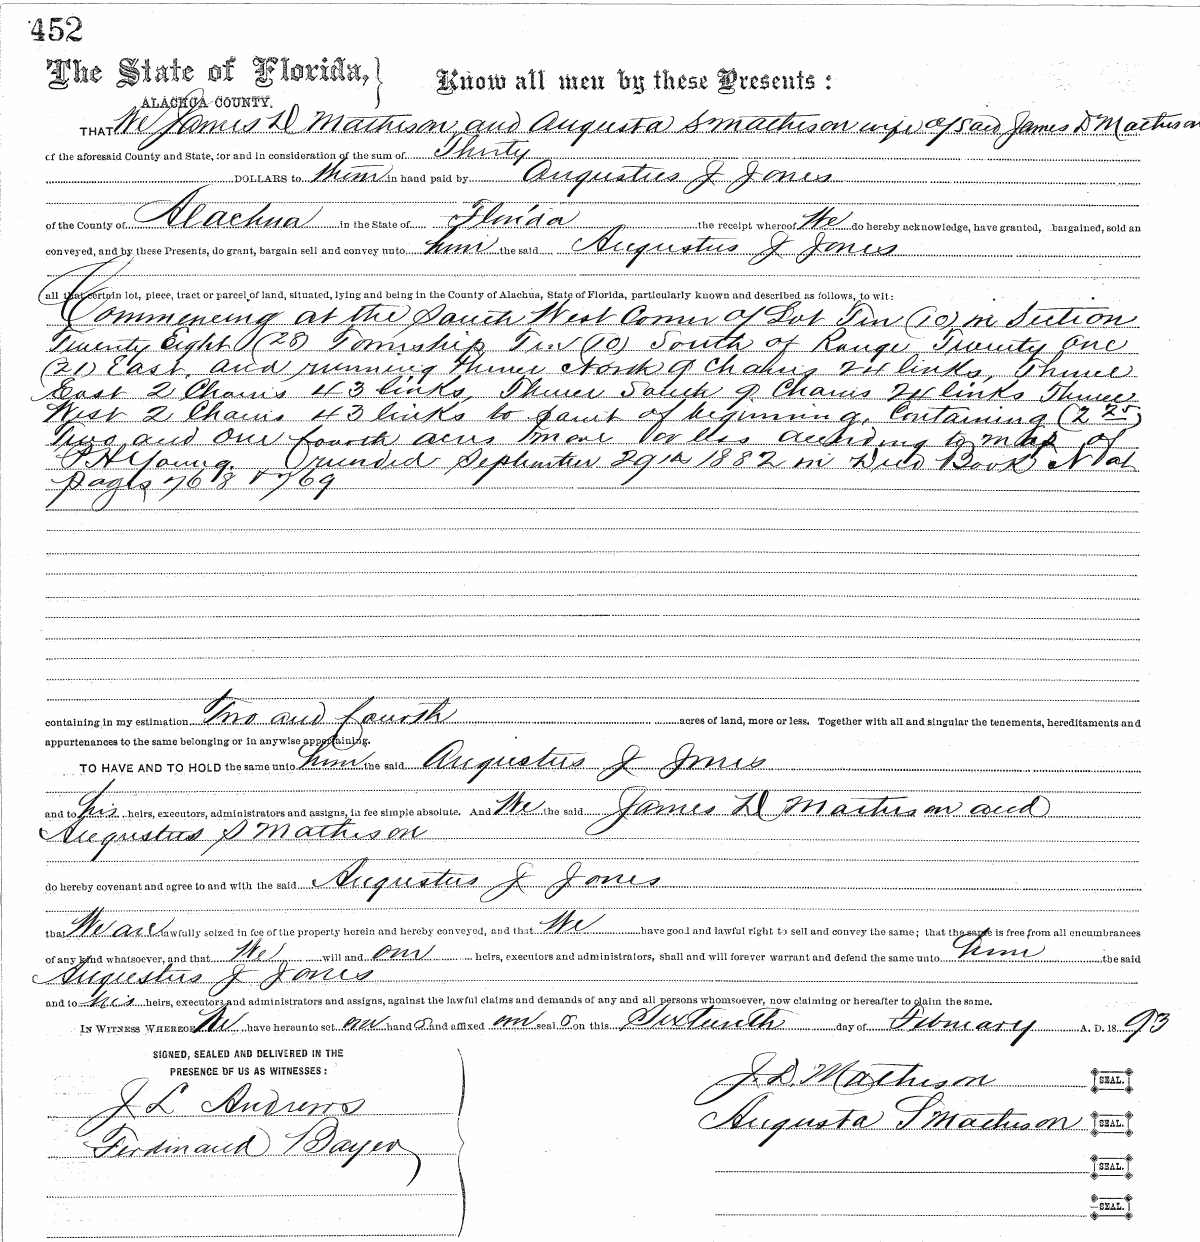 452
The State of Florida, } Know all men by these Presents :
ALACHUA COUNTY.
THAT We James D Matheson and Augusta S Matheson wife of said James D Matheson
of the aforesaid County and State, for and in consideration of the sum of Thirty
DOLLARS to them in hand paid by Augustus J Jones
of the County of Alachua in the State of Florida the receipt whereof We do hereby acknowledge, have granted, bargained, sold an
conveyed, and by these Presents, do grant, bargain sell and convey unto him the said Augustus J Jones
all that certain lot, piece, tract or parcel of land, situated, lying and being in the County of Alachua, State of Florida, particularly known and described as follows, to wit:
Commencing at the South West Corner of Lot Ten (10) in Section
Twenty Eight (28) Township Ten (10) South of Range Twenty one
(21) East, and running thence North 9 Chains 24 links, Thence
East 2 Chains 43 links, Thence South 9 Chains 24 links Thence
West 2 Chains 43 links to point of beginning, Containing (2 25)
Two and One fourth acres more or less according to map of
P H Young. recorded September 29th 1882 in Deed Book N at
pages 768 & 769
containing in my estimation Two and fourth acres of land, more or less. Together with all and singular the tenements, hereditaments and
appurtenances to the same belonging or in anywise appertaining.
TO HAVE AND TO HOLD the same unto him the said Augustus J Jones
and to his heirs, executors, administrators and assigns, in fee simple absolute. And We the said James D Matheson and
Augustus S Matheson
do hereby covenant and agree to and with the said Augustus J Jones
that We are lawfully seized in fee of the property herein and hereby conveyed, and that We have good and lawful right to sell and convey the same; that the same is free from all encumbrances
of any kind whatsoever, and that We will and our heirs, executors and administrators, shall and will forever warrant and defend the same unto him the said
Augustus J Jones
and to his heirs, executors and administrators and assigns, against the lawful claims and demands of any and all persons whomsoever, now claiming or hereafter to claim the same.
IN WITNESS WHEREOF We have hereunto set our hand s and affixed our seal s on this Sixteenth day of February A. D. 18 93
SIGNED, SEALED AND DELIVERED IN THE
PRESENCE OF US AS WITNESSES:
J. D. Matheson SEAL.
J L Andrews
Augusta S Matheson SEAL.
Ferdinand Bayer
SEAL.
SEAL.